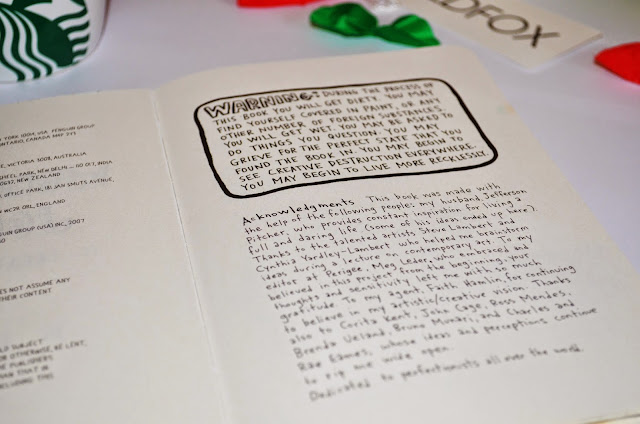 DFOX
YORK 10014, USA PENGUIN GROUP
ONTARIO, CANADA M4P 2Y3
E, VICTORIA 3008, AUSTRALIA
PARK, NEW DELHI – 110 017, INDIA
0632, NEW ZEALAND
OFFICE PARK, 181 JAN SMUTS AVENUE,
WC2R 0RL, ENGLAND
NGUIN GROUP (USA) INC., 2007
ES NOT ASSUME ANY
THEIR CONTENT
SUBJECT
OR OTHERWISE, BE LENT,
PUBLISHERS
THAN THAT IN
INCLUDING THIS
WARNING: DURING THE PROCESS OF
THIS BOOK YOU WILL GET DIRTY. YOU MAY
FIND YOURSELF COVERED IN PAINT, OR ANY
OTHER NUMBER OF FOREIGN SUBSTANCES.
YOU WILL GET WET. YOU MAY BE ASKED TO
DO THINGS YOU QUESTION. YOU MAY
GRIEVE FOR THE PERFECT STATE THAT YOU
FOUND THE BOOK IN. YOU MAY BEGIN TO
SEE CREATIVE DESTRUCTION EVERYWHERE.
YOU MAY BEGIN TO LIVE MORE RECKLESSLY.
Acknowledgments This book was made with
the help of the following people: my husband Jefferson
Pitcher, who provides constant inspiration for living a
full and daring life (some of his ideas ended up here).
Thanks to the talented artists Steve Lambert and
Cynthia Yardley Lambert who helped me brainstorm
ideas during a lecture on contemporary art. To my
editor at Perigee, Meg Leder, who embraced and
believed in this project from the beginning, your
thoughts and sensitivity left me with so much
gratitude. To my agent, Faith Hamlin, for continuing
to believe in my artistic/creative vision. Thanks
also to Corita Kent, John Cage, Ross Mendes,
Brenda Ueland, Bruno Munari, and Charles and
Rae Eames, whose ideas and perceptions continue
to rip me wide open.
Dedicated to perfectionists all over the world.